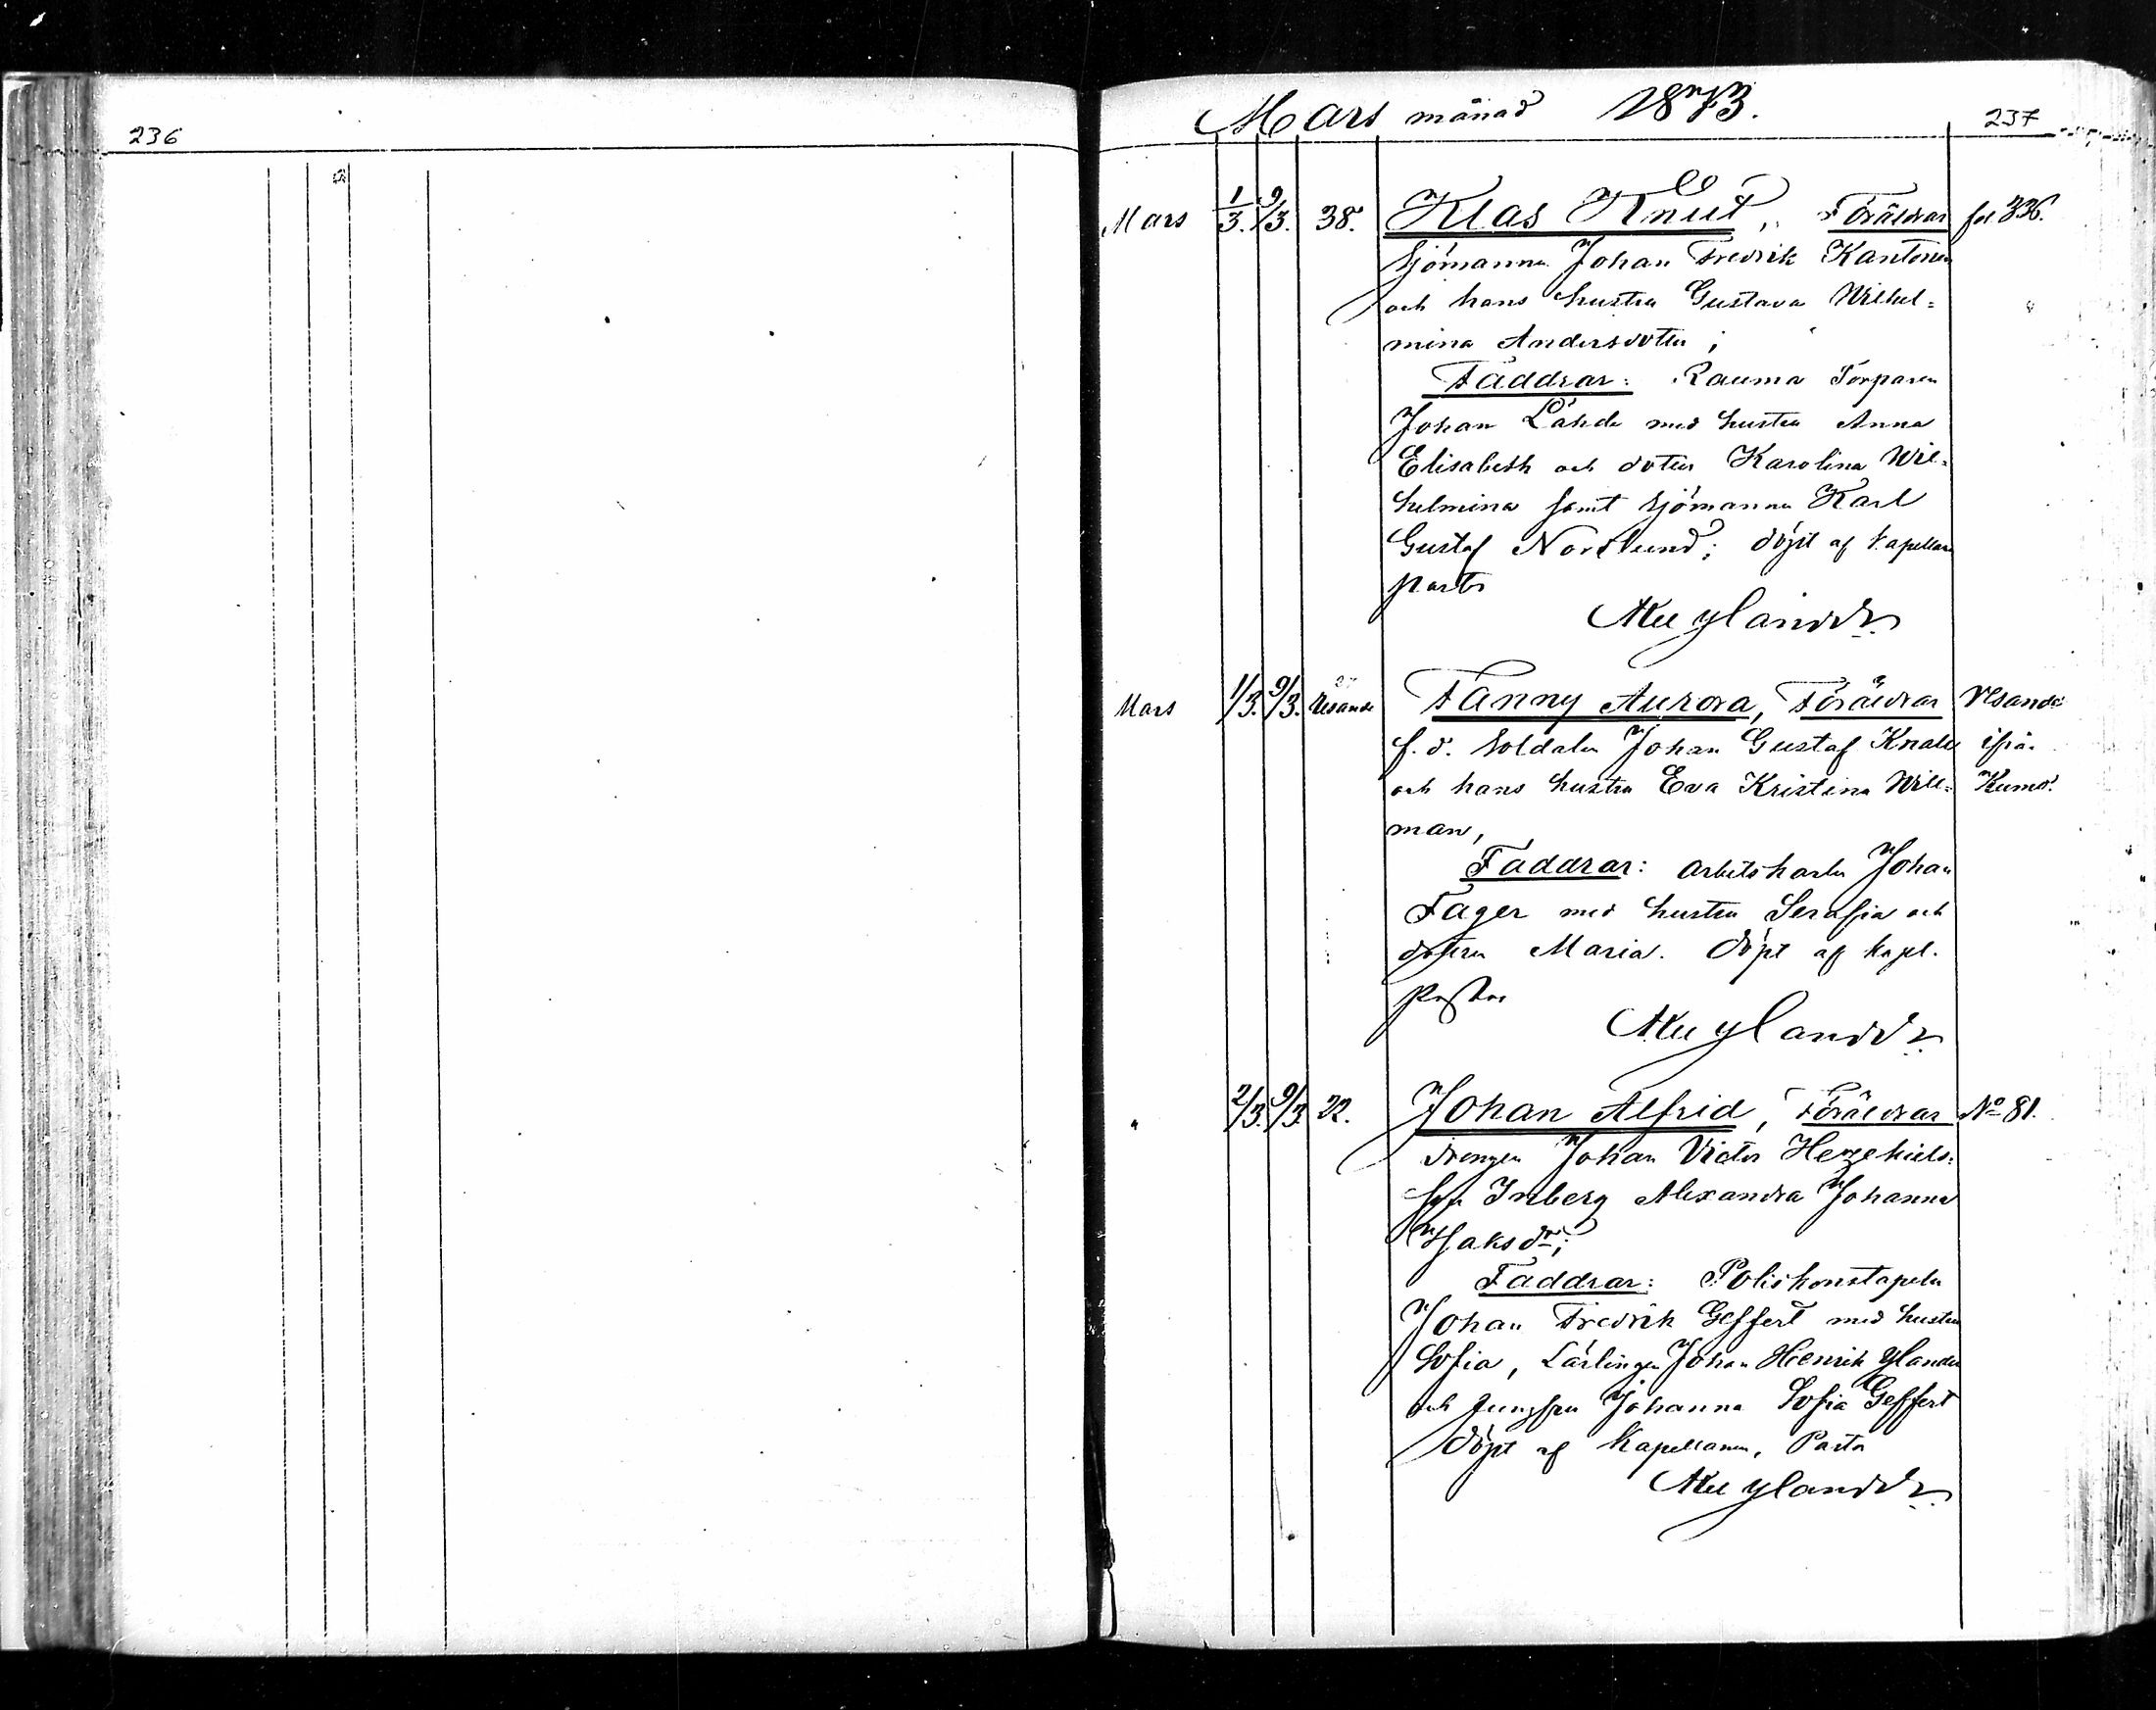 236
Mars månad 1873.
237
Mars 1/3. 9/3. 38. Klas Knut, Föräldrar fol. 336.
Sjömannen Johan Fredrik Kantonen
och hans hustru Gustava Wilhel=
mina Andersdotter;
Faddrar: Rauma Torparen
Johan Lähde med hustru Anna
Elisabeth och dotter Karolina Wil=
helmina samt sjömannen Karl
Gustaf Nordlund; döpt af kapellan
pastor
Aug Ylander
Mars 1/3. 9/3. Resande Fanny Aurora, Föräldrar Resande
f. d. Soldaten Johan Gustaf ifrån
och hans hustru Eva Kristina Will= Kumo.
man,
Faddrar: arbetskarlen Johan
Fager med hustru Serafia och
dottren Maria. Döpt af kapl.
Pastor
Ylander
" 2/3. 9/3. 22. Johan Alfrid, Föräldrar No 81.
drengen Johan Victor Hezekiels=
son Inberg Alexandra Johanna
Isaksdr;
Faddrar: Poliskonstapeln
Johan Fredrik Geffert med hustru
Sofia, Lärlingen Johan Henrik Ylander
och Jungfru Johanna Sofia Geffert
döpt af Kapellanen, Pastor
Ylander